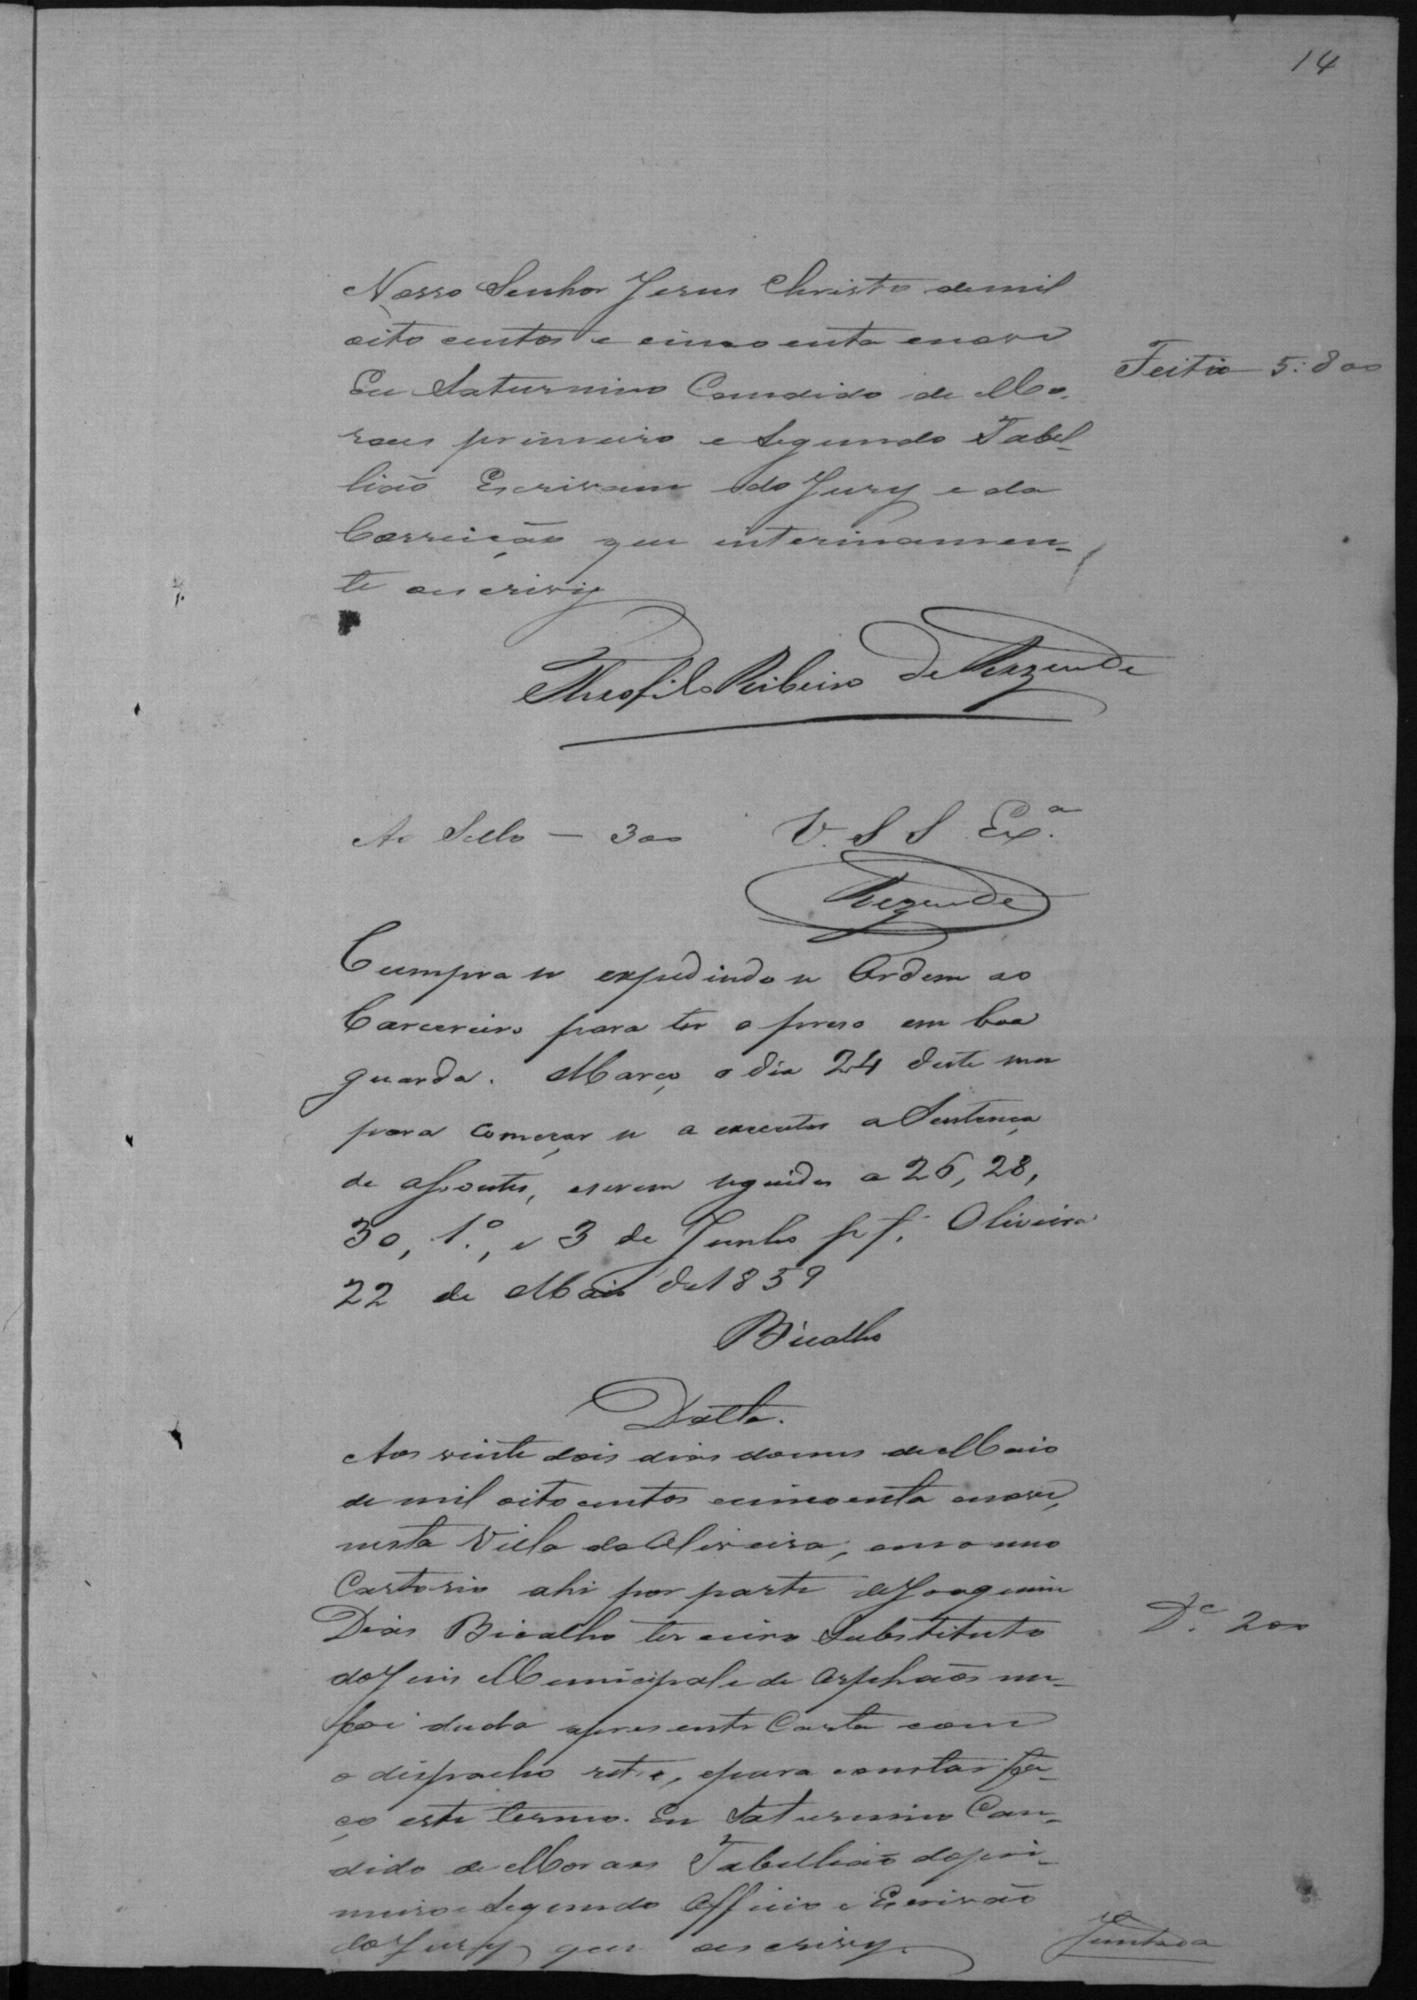 14
Nosso Senhor Jesus Christo de mil
oito centos e cincoenta enove
Eu Saturnino Candido de Mo-
raes primeiro e Segundo Tabel-
lião Escrivam do Jury e da
Correição que interinamen-
te escrivi
Feitio 5:800
Theofilo Ribeiro de Rezende
Ao Sello — 300 V. S S Ex.ª
Rezende
Cumpra se expedindo se Ordem ao
Carcereiro para ter o preso em boa
guarda. Março o dia 24 deste mes
para começar se a executar a Sentença
de assoutes, eserem seguidos a 26, 28,
30, 1.º, e 3 de Junho p f. Oliveira
22 de Maio de 1859
Bicalho
Datta.
Aos vinte dois dias domes de Maio
de mil oito centos ecincoenta enove,
nesta Villa da Oliveira, em o meu
Cartorio ahi por parte de Joaquim
Dias Bicalho terceiro Substituto
do Juis Municipal e de Orphãos me
foi dada apresente Carta com
o dispacho retro, epara constar fa-
ço este termo. Eu Saturnino Can-
dido de Moraes Tabellião do pri-
meiro e Segundo Officio e Escrivão
do Jury que escrivy.
D.e 200
Juntada